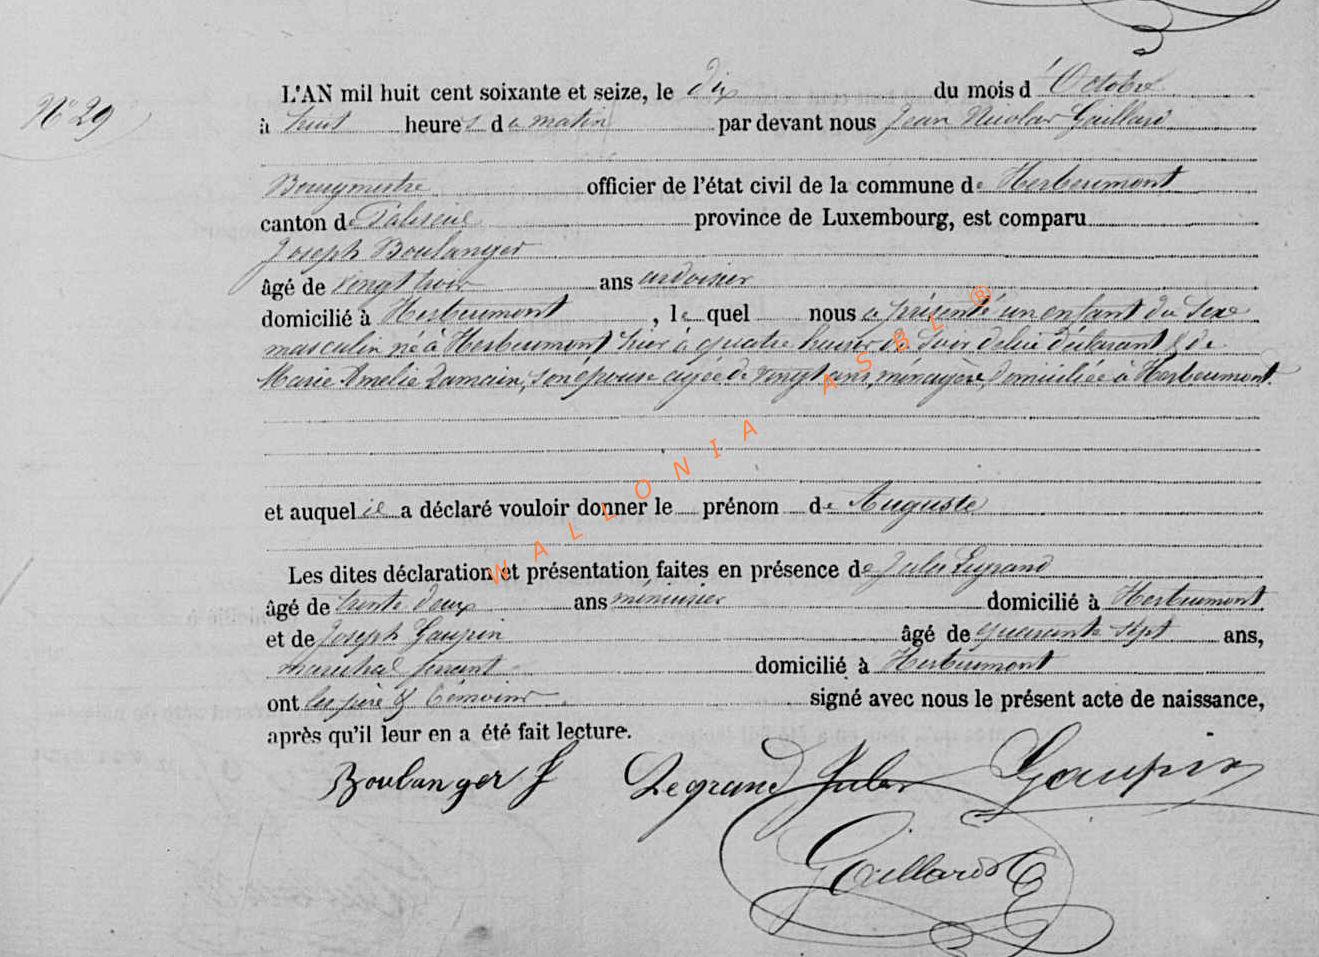 N° 29
L'AN mil huit cent soixante et seize, le dix du mois d'Octobre
à huit heures de matin par devant nous Jean Nicolas Gaillard
Bourgmestre officier de l'état civil de la commune de Herbeumont
canton de Paliseul province de Luxembourg, est comparu
Joseph Boulanger
âgé de vingt trois ans ardoisier
domicilié à Herbeumont, le quel nous a présenté un enfant du sexe
masculin né à Herbeumont hier à quatre heures du soir de lui déclarant & de
Marie Amelie Lamain, son épouse agée de vingt ans, ménagère, domiciliée à Herbeumont.
et auquel il a déclaré vouloir donner le prénom de Auguste
Les dites déclaration et présentation faites en présence de Jules Legrand
âgé de trente deux ans menuisier domicilié à Herbeumont
et de Joseph Gaupin âgé de quarante sept ans,
maréchal ferrant domicilié à Herbeumont
ont les père & témoins signé avec nous le présent acte de naissance,
après qu'il leur en a été fait lecture.
Boulanger J Legrand Jules Gaupin
Gaillard
WALLONIA ASBL ®